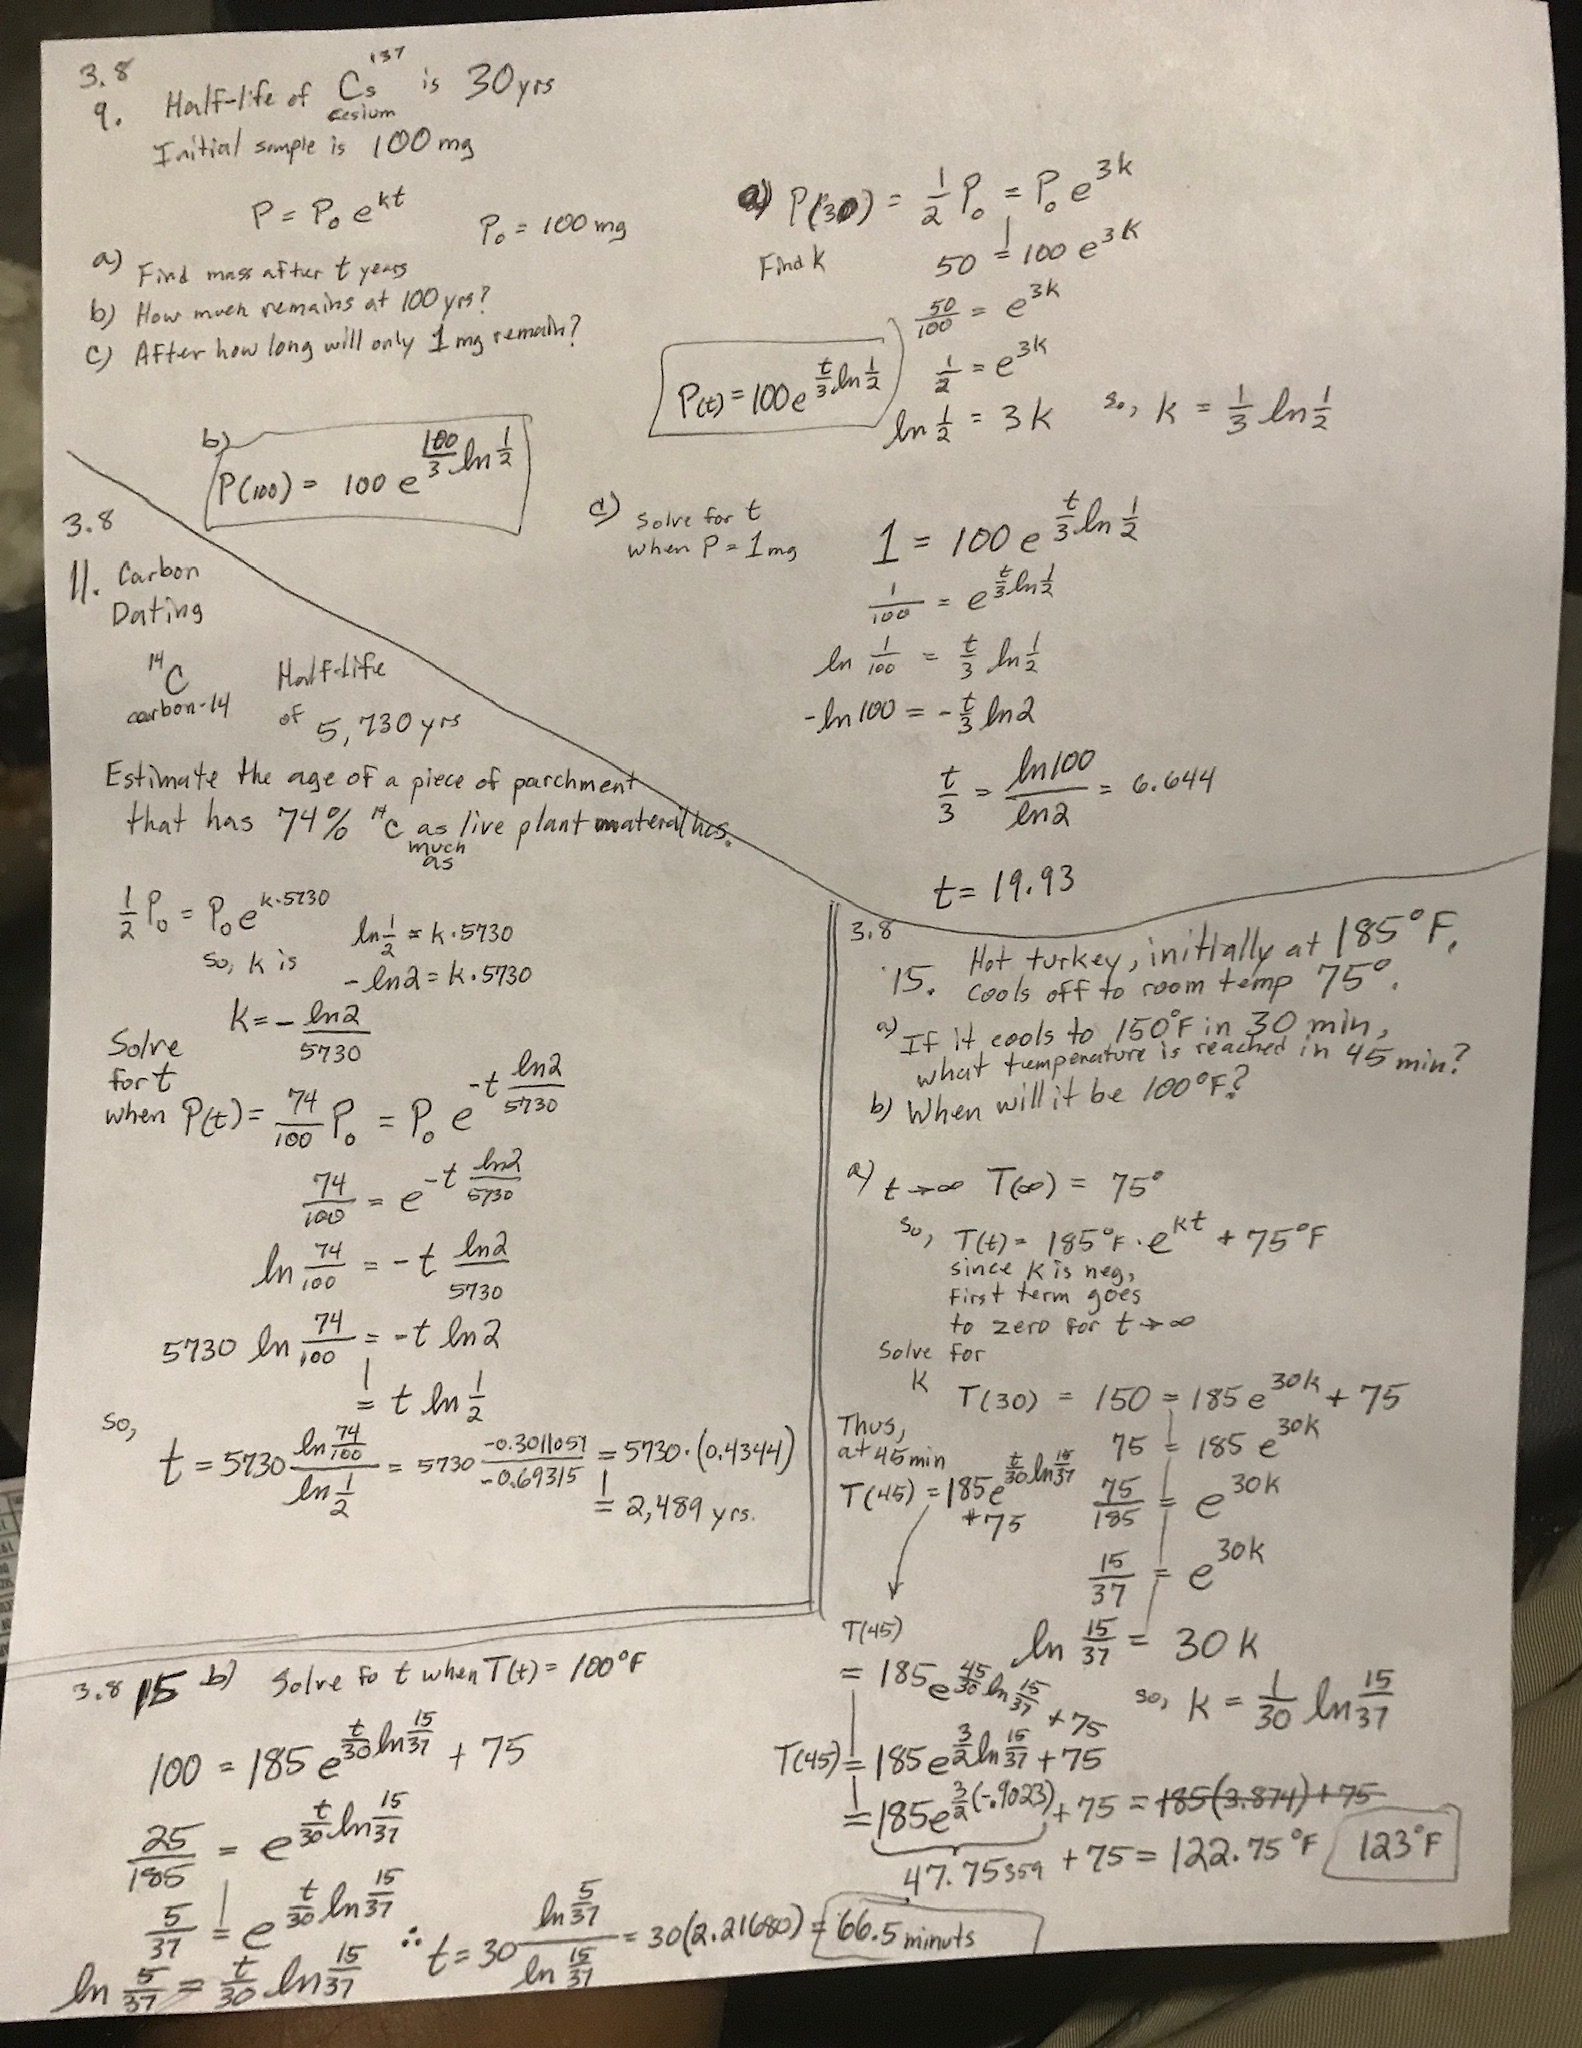 3.8
9. Half-life of Cs¹³⁷ is 30 yrs
cesium
Initial sample is 100 mg
P = P₀ e^(kt)
P₀ = 100 mg
a) Find mass after t years
b) How much remains at 100 yrs?
c) After how long will only 1 mg remain?
a) P(30) = 1/2 P₀ = P₀ e^(3k)
Find k
50 = 100 e^(3k)
50/100 = e^(3k)
1/2 = e^(3k)
ln 1/2 = 3k so, k = 1/3 ln 1/2
P(t) = 100 e^(t/3 ln 1/2)
b)
P(100) = 100 e^(100/3 ln 1/2)
c) Solve for t
when P = 1 mg
1 = 100 e^(t/3 ln 1/2)
1/100 = e^(t/3 ln 1/2)
ln 1/100 = t/3 ln 1/2
-ln 100 = -t/3 ln 2
t/3 = ln 100/ln 2 = 6.644
t = 19.93
3.8
11. Carbon
Dating
¹⁴C
carbon-14
Half-life
of 5,730 yrs
Estimate the age of a piece of parchment
that has 74% ¹⁴C as live plant material has.
much
as
1/2 P₀ = P₀ e^(k·5730)
so, k is
ln 1/2 = k·5730
-ln 2 = k·5730
k = - ln 2/5730
Solve
for t
when P(t) = 74/100 P₀ = P₀ e^(-t ln 2/5730)
74/100 = e^(-t ln 2/5730)
ln 74/100 = -t ln 2/5730
5730 ln 74/100 = -t ln 2
= t ln 1/2
so,
t = 5730 (ln 74/100)/(ln 1/2) = 5730 (-0.3011051)/(-0.69315) = 5730·(0.4344)
= 2,489 yrs.
3.8
15. Hot turkey, initially at 185°F,
cools off to room temp 75°.
a) If it cools to 150°F in 30 min,
what temperature is reached in 45 min?
b) When will it be 100°F?
a) t→∞ T(∞) = 75°
so, T(t) = 185°F·e^(kt) + 75°F
since k is neg,
first term goes
to zero for t→∞
Solve for
k T(30) = 150 = 185 e^(30k) + 75
75 = 185 e^(30k)
75/185 = e^(30k)
15/37 = e^(30k)
ln 15/37 = 30k
so, k = 1/30 ln 15/37
Thus,
at 45 min
T(45) = 185 e^(t/30 ln 15/37)
+75
T(45)
= 185 e^(45/30 ln 15/37) + 75
T(45) = 185 e^(3/2 ln 15/37) + 75
= 185 e^(3/2(-.9023)) + 75 = 185(3.874)+75
47.75359 + 75 = 122.75°F 123°F
3.8 15 b) Solve fo t when T(t) = 100°F
100 = 185 e^(t/30 ln 15/37) + 75
25/185 = e^(t/30 ln 15/37)
5/37 = e^(t/30 ln 15/37)
ln 5/37 = t/30 ln 15/37
∴ t = 30 (ln 5/37)/(ln 15/37) = 30(2.21680) = 66.5 minuts